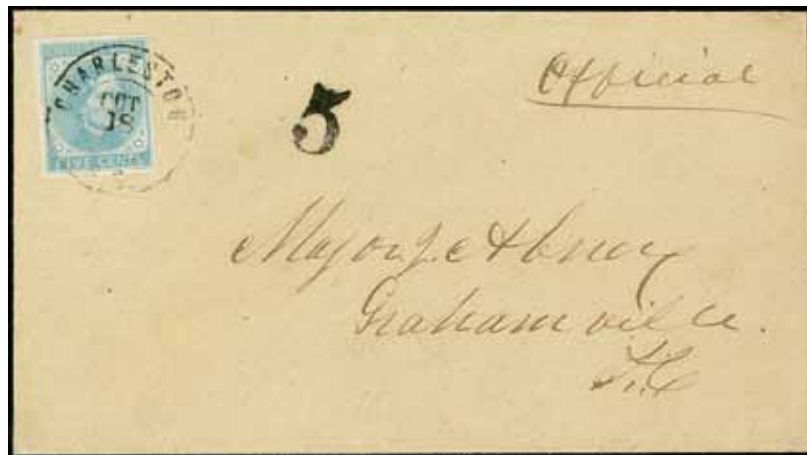 CHARLESTON
OCT
18
FIVE CENTS
5
Official
Major J. Abney
Grahamville.
S.C